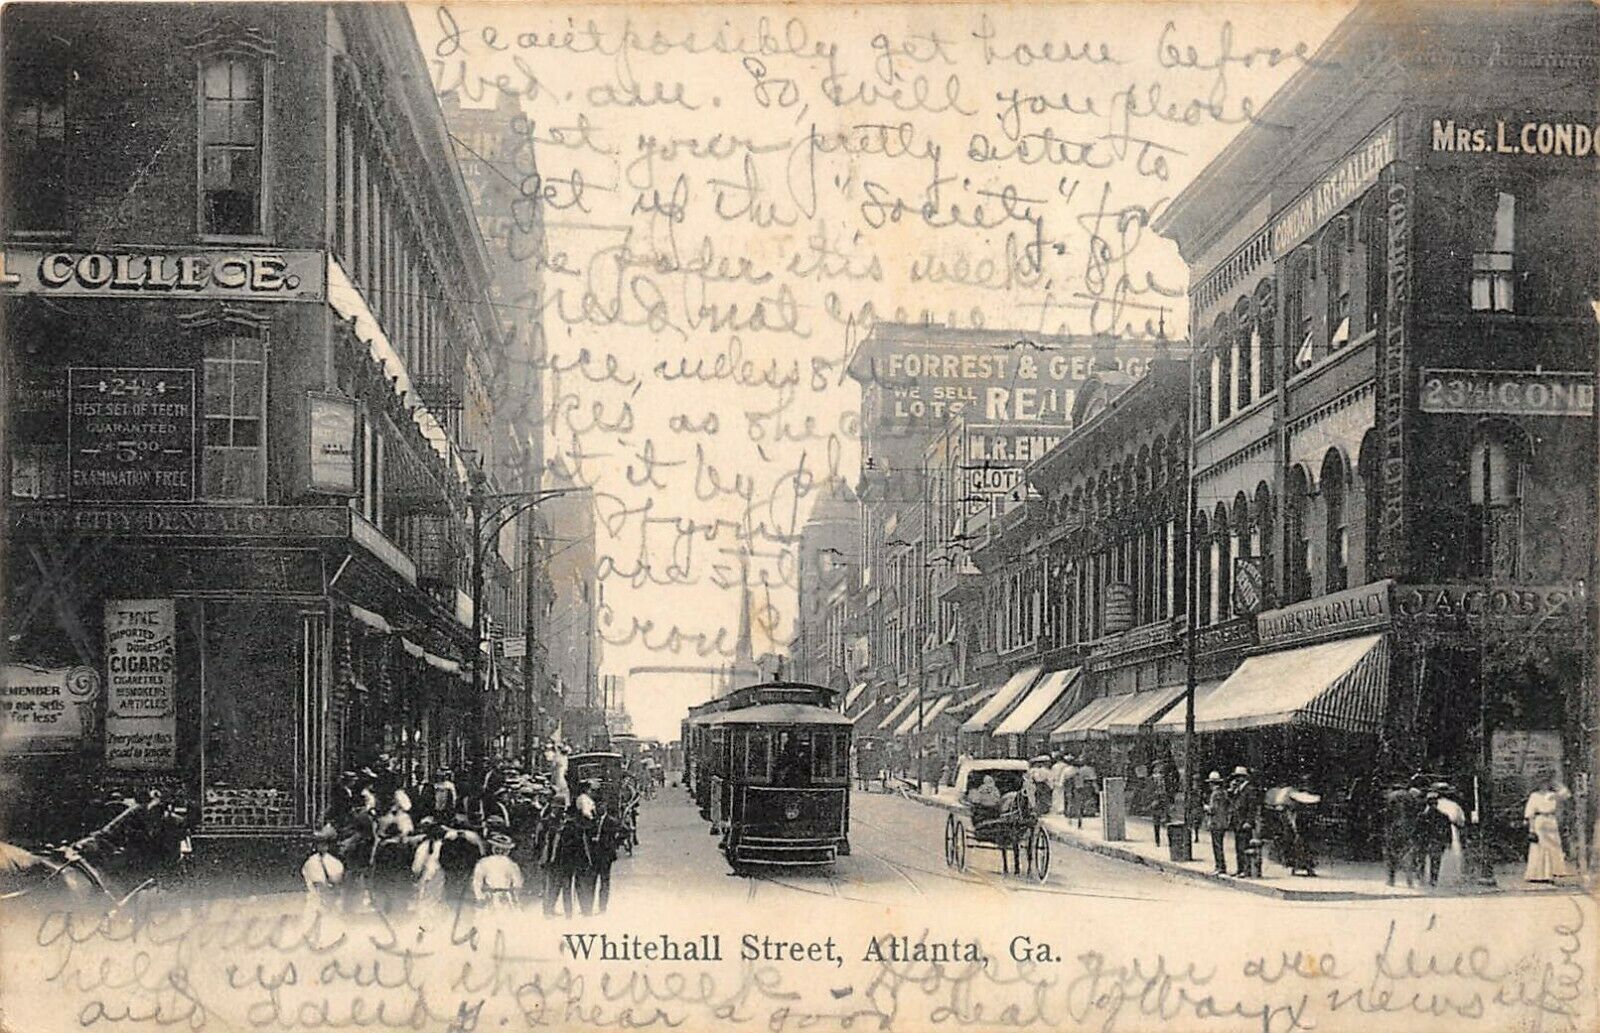 I cant possibly get home before
Wed. am. So, will you please
get your pretty sister to
get up the "Society" for
the paper this week. She
need not come to the
office, unless she
likes, as she can
get it by phone
If you
are still
Cross
L COLLEGE.
24½
BEST SET OF TEETH
GUARANTEED
$5.00
EXAMINATION FREE
CITY DENTAL
FINE
IMPORTED
DOMESTIC
CIGARS
CIGARETTES
AND SMOKERS
ARTICLES
Everything that's
good to smoke
REMEMBER
one sells
for less"
FORREST & GEORGE
WE SELL
LOTS
REAL
M.R. EMM
CLOTH
CONDON ART GALLERY
MRS. L. CONDO
23½ COND
CONDON ART GALLERY
JACOBS' PHARMACY
JACOBS'
Whitehall Street, Atlanta, Ga.
ask Miss
help us out this week - Hope you are fine
and dandy. I hear a good deal of Wayx news up
here